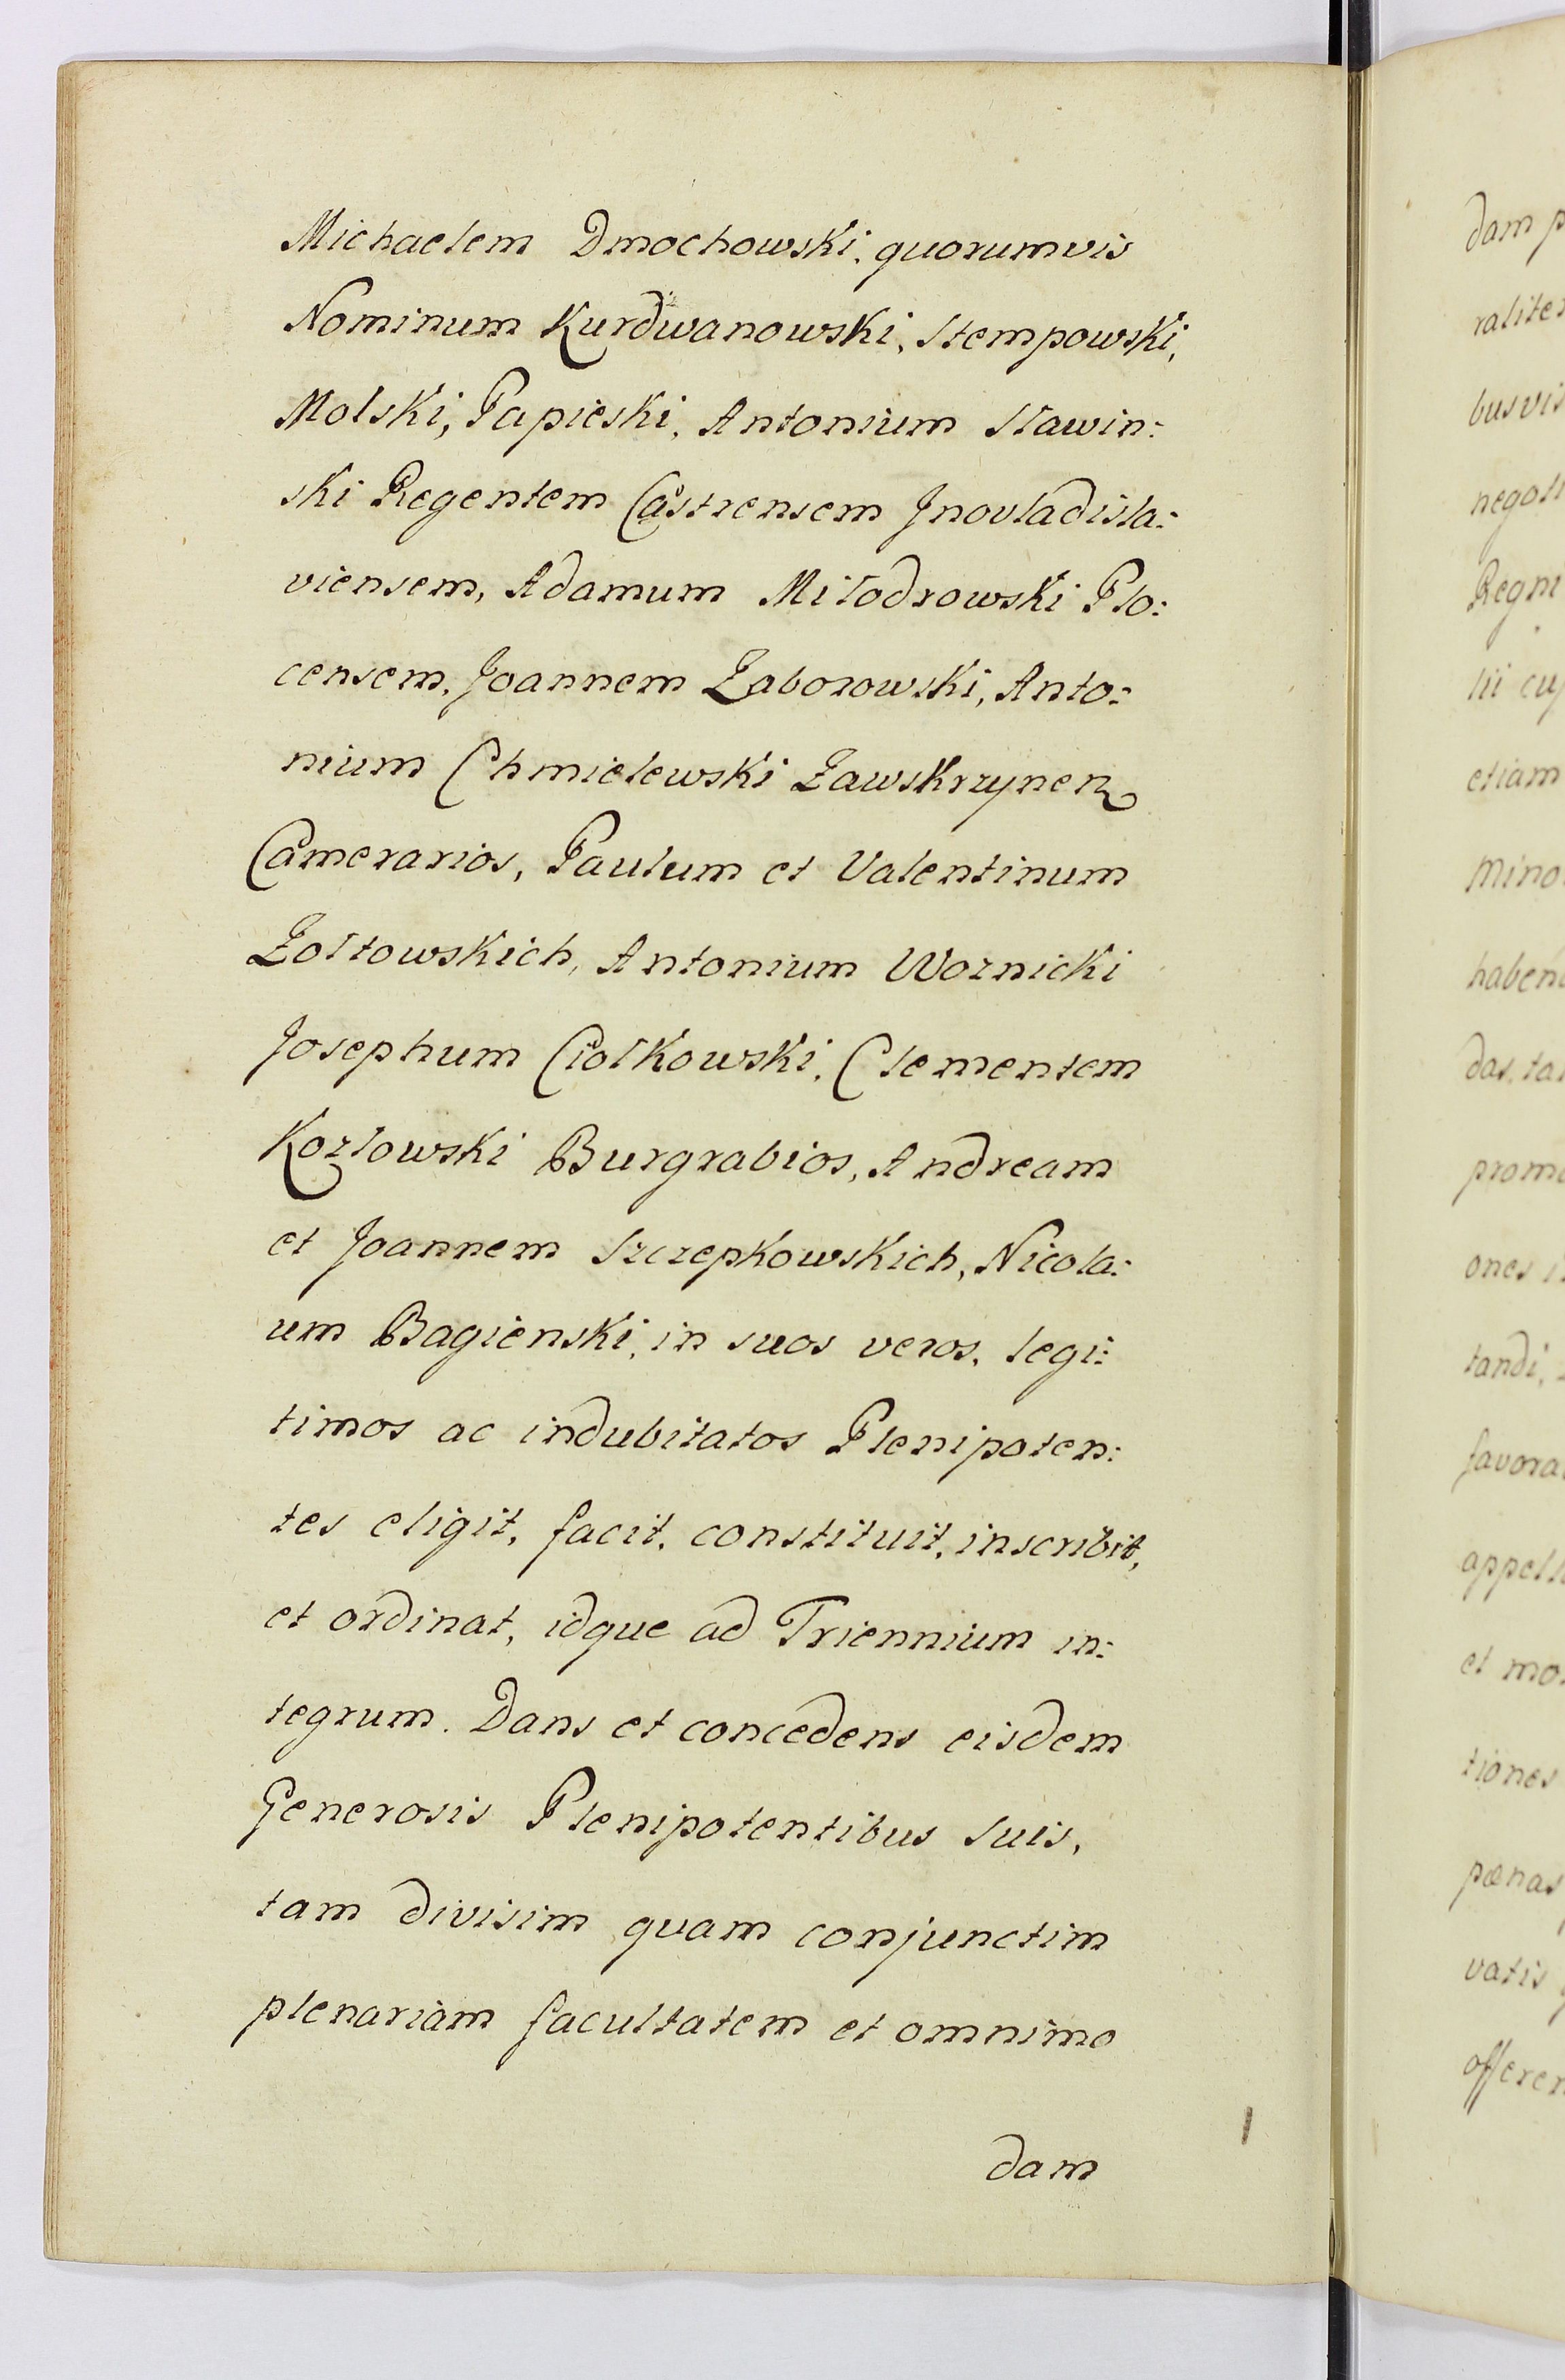 Michaelem Dmochowski, quorumvis
Nominum Kurdwanowski, Stempowski,
Molski, Papieski, Antonium Sławin:
ski Regentem Castrensem Jnovladisla:
viensem, Adamum Miłodrowski Plo:
censem, Joannem Zaborowski, Anto:
nium Chmielewski Zawskrzynen
Camerarios, Paulum et Valentinum
Zołtowskich, Antonium Woznicki
Josephum Ciołkowski, Clementem
Kozłowski Burgrabios, Andream
et Joannem Szczepkowskich, Nicola:
um Bagienski, in suos veros, legi:
timos ac indubitatos Plenipoten:
tes eligit, facit, constituit, inscribit,
et ordinat, idque ad Triennium in:
tegrum. Dans et concedens eisdem
Generosis Plenipotentibus suis,
tam divisim quam conjunctim
plenariam facultatem et omnimo
dam
dam p
ralite
busvis
negoti
Regni
lii cuj
etiam
Mino
haben
das, ta
promo
ones
tandi,
favora
appell
et mo
tiones
pœnas
vatis
offeren